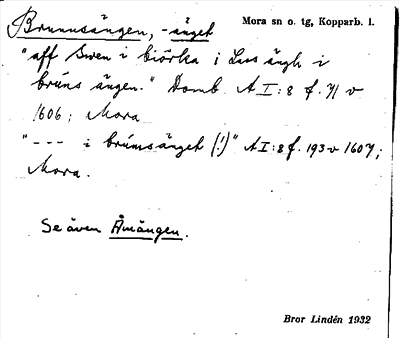 Brunnsängen, -änget
Mora sn o. tg, Kopparb. l.
"aff Swen i biörka i Lass ängh i
brúns ängen." Domb. A I:8 f. 71 v
1606; Mora
"--- i brúmsänget (!)" A I:8 f. 193 v 1607;
Mora.
Se även Åmängen.
Bror Lindén 1932